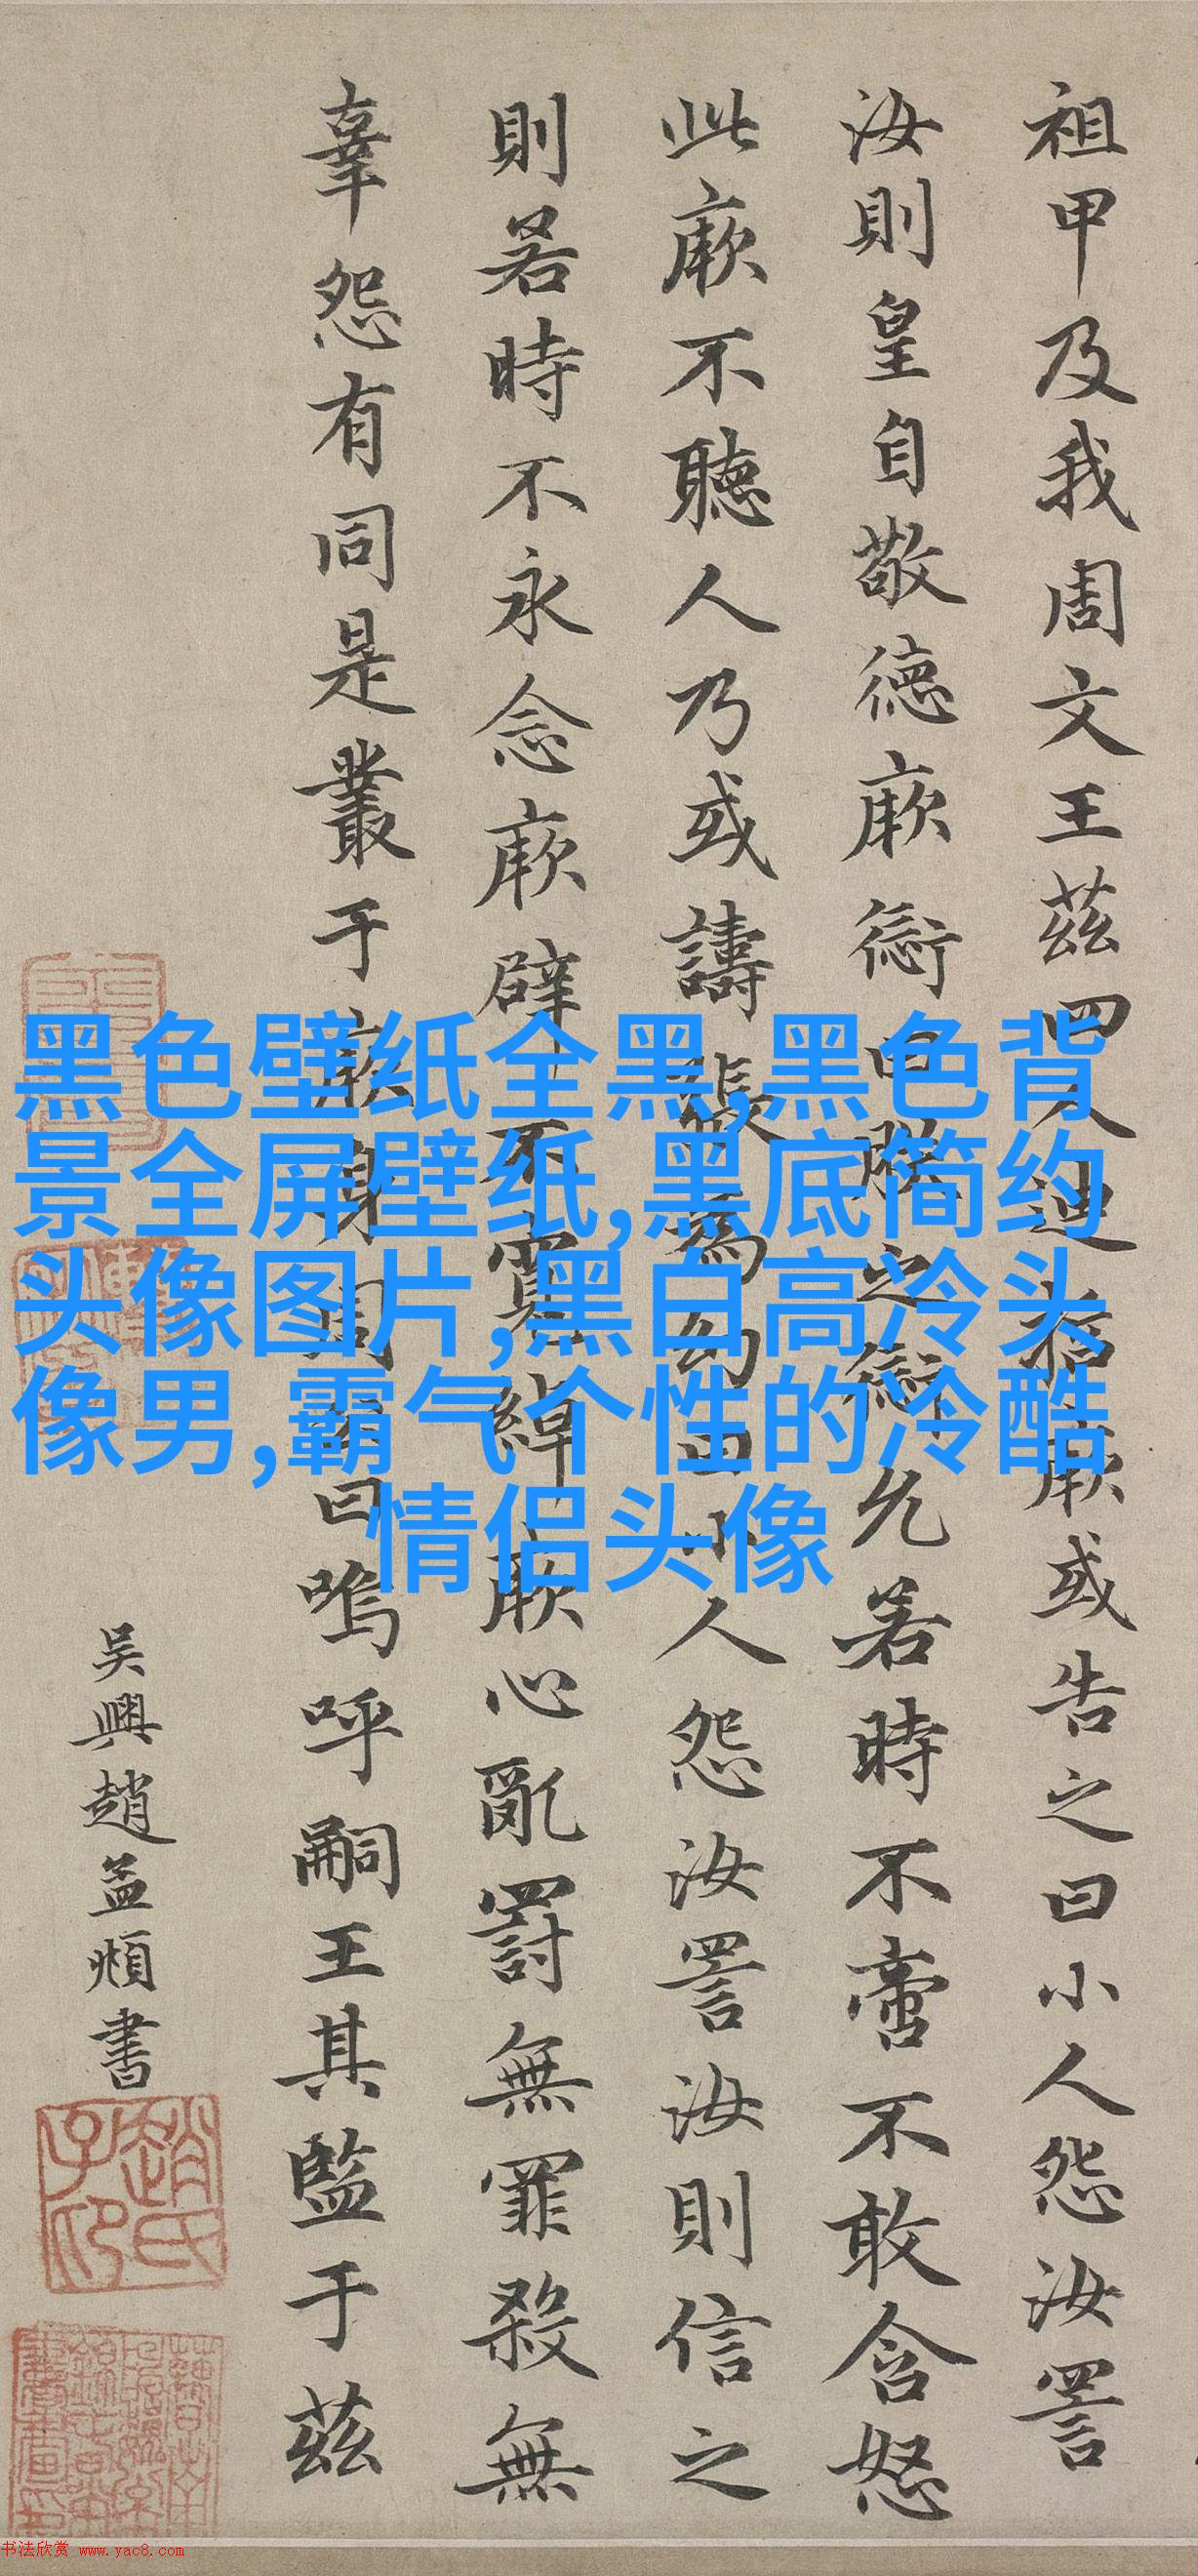 祖甲及我周文王茲四人迪哲厥或告之曰小人怨汝詈
汝則皇自敬德厥愆曰朕之愆允若時不啻不敢含怒
此厥不聽人乃或譸張為幻曰小人怨汝詈汝則信之
則若時不永念厥辟不寬綽厥心亂罰無罪殺無
辜怨有同是叢于厥身周公曰嗚呼嗣王其監于茲
吴興趙孟頫書
趙氏子昂
黑色壁纸全黑,黑色背
景全屏壁纸,黑底简约
头像图片,黑白高冷头
像男,霸气个性的冷酷
情侣头像
书法欣赏 www.yac8.com